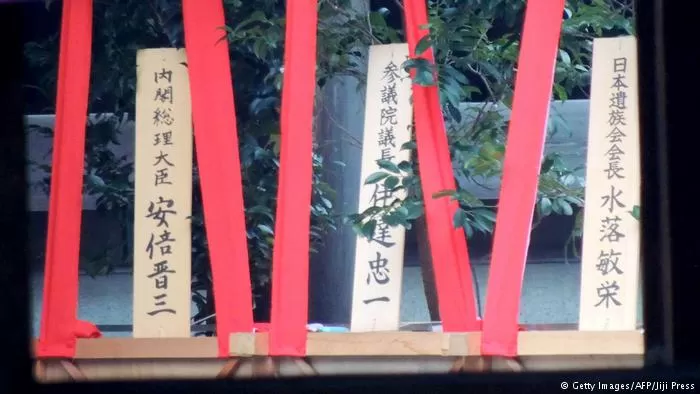 内閣総理大臣 安倍晋三
参議院議長 伊達忠一
日本遺族会会長 水落敏栄
© Getty Images/AFP/Jiji Press